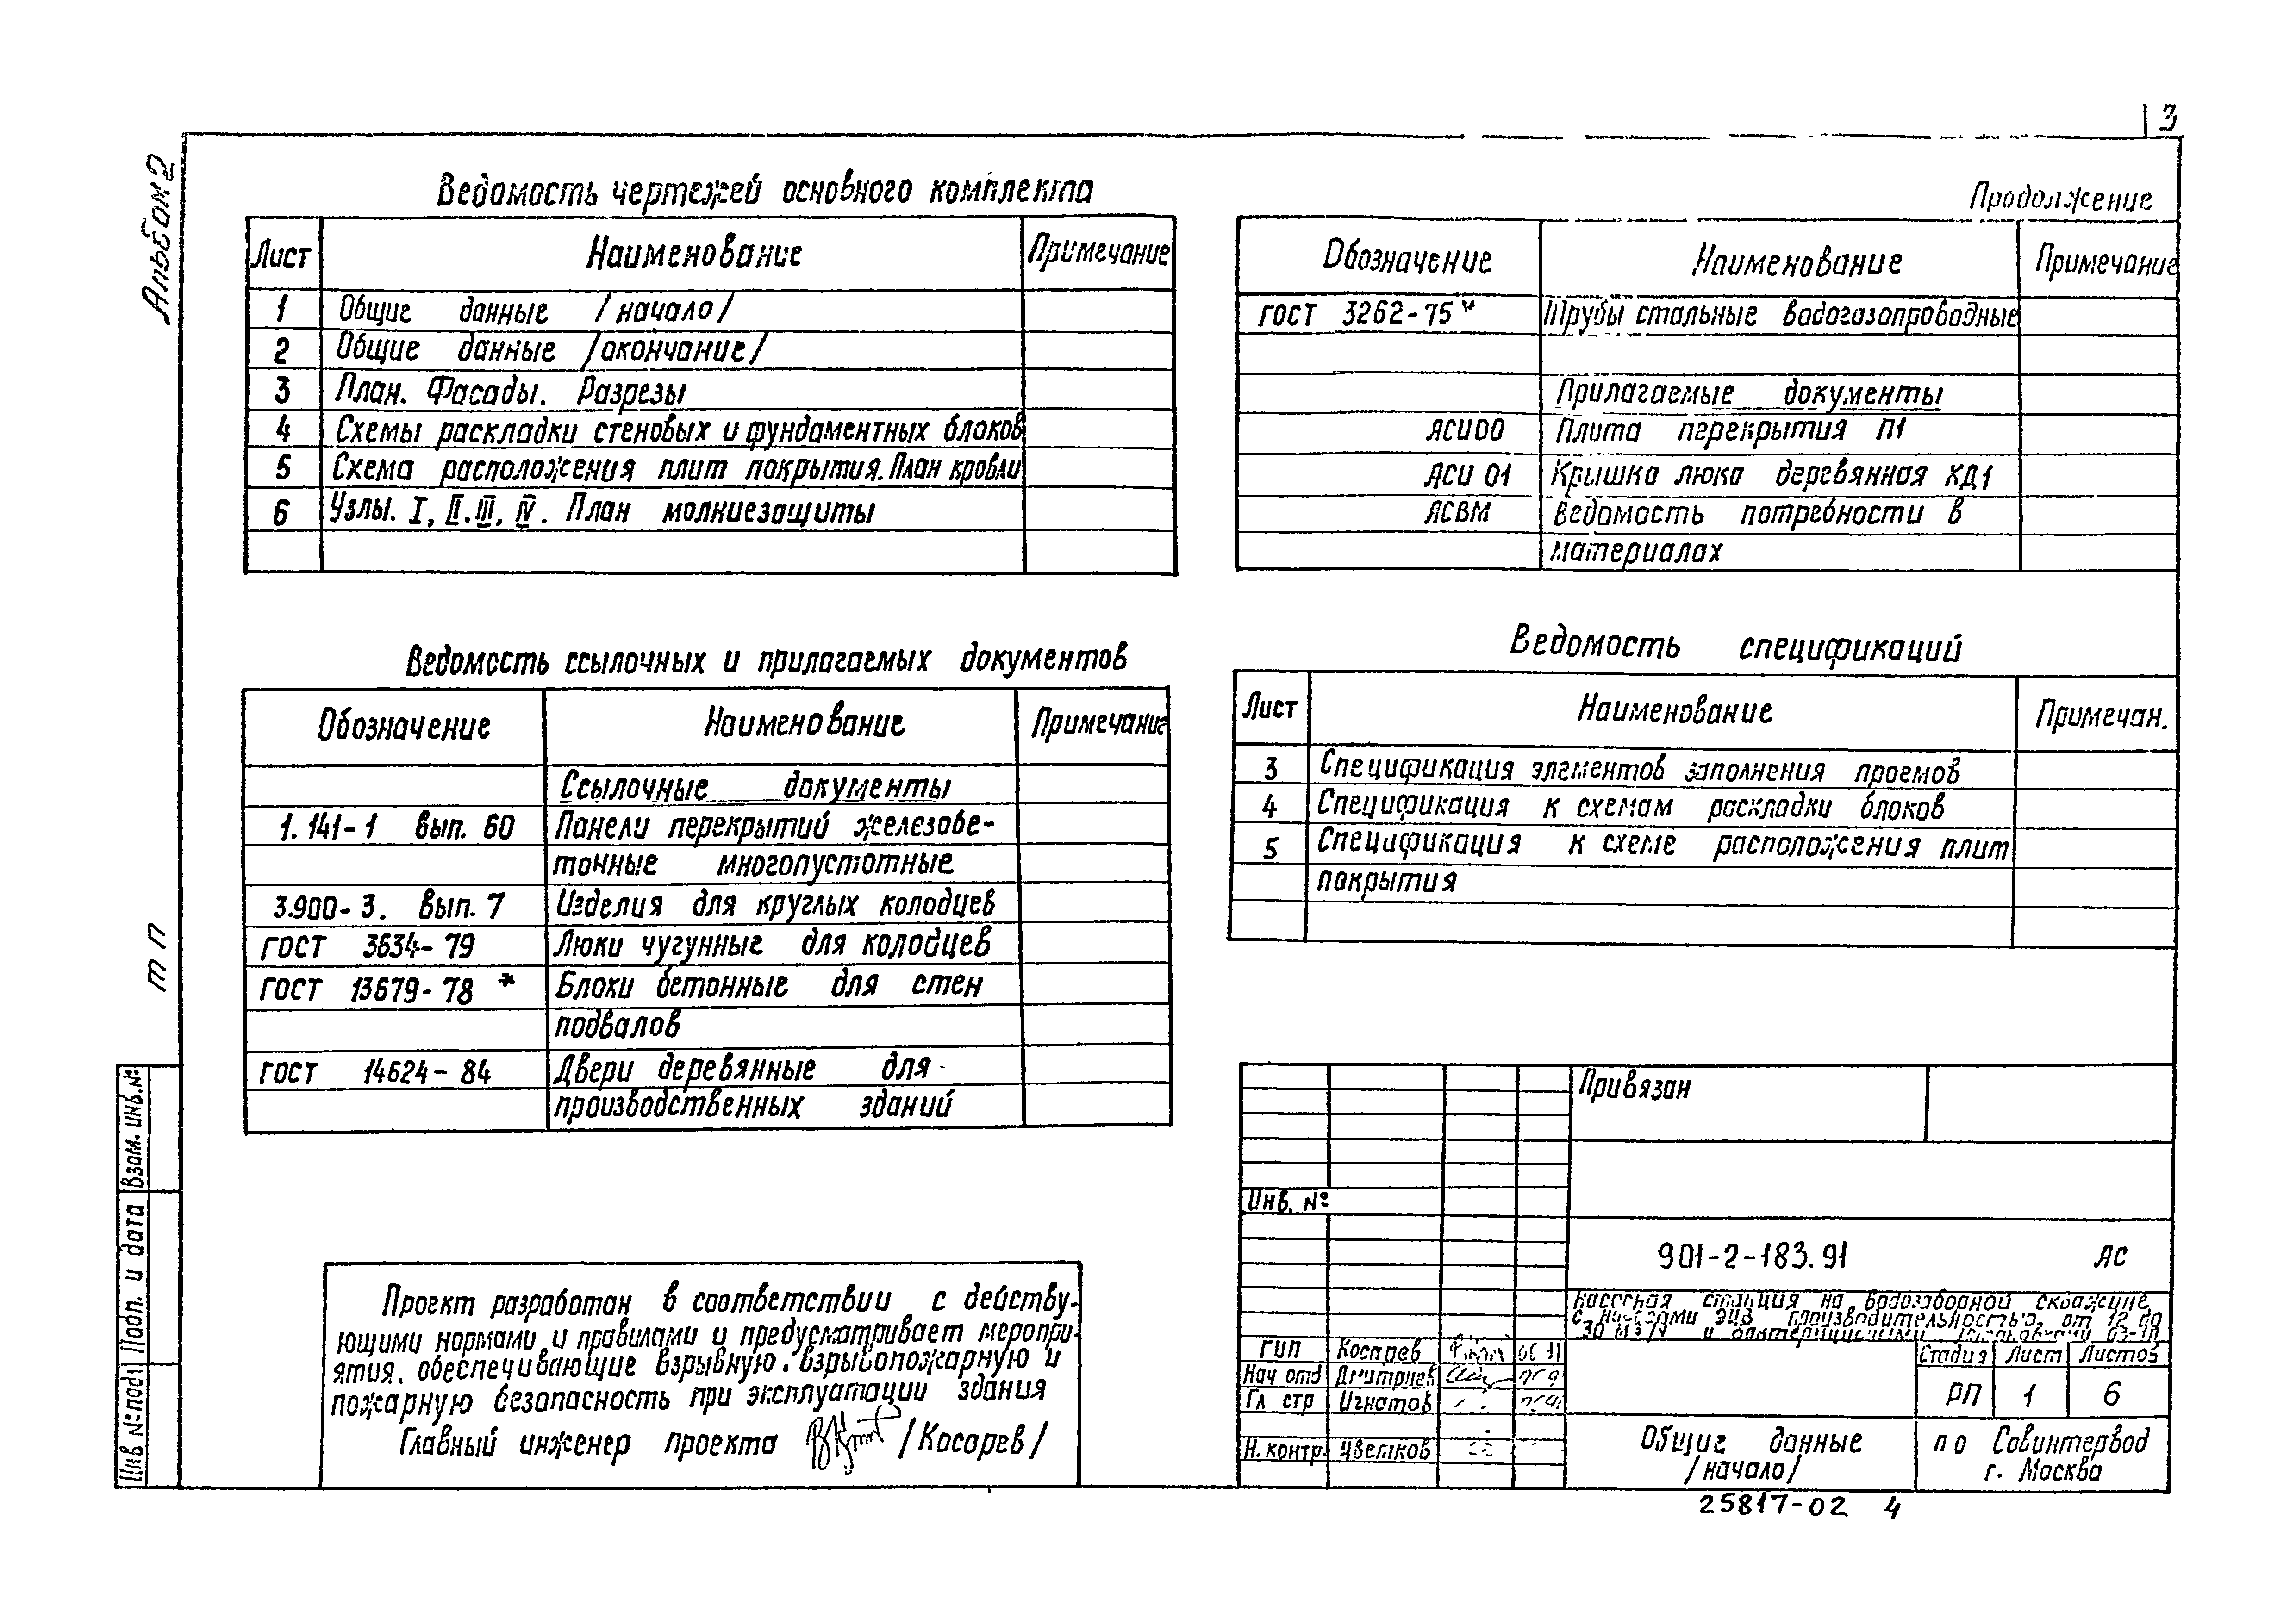 3
Альбом 2
Ведомость чертежей основного комплекта
Лист Наименование Примечание
1 Общие данные /начало/
2 Общие данные /окончание/
3 План. Фасады. Разрезы
4 Схемы раскладки стеновых и фундаментных блоков
5 Схема расположения плит покрытия. План кровли
6 Узлы. I, II. III, IV. План молниезащиты
Ведомость ссылочных и прилагаемых документов
Обозначение Наименование Примечание
Ссылочные документы
1.141-1 вып. 60 Панели перекрытий железобе-
тонные многопустотные
3.900-3. вып. 7 Изделия для круглых колодцев
ГОСТ 3634-79 Люки чугунные для колодцев
ГОСТ 13679-78 * Блоки бетонные для стен
подвалов
ГОСТ 14624-84 Двери деревянные для
производственных зданий
Проект разработан в соответствии с действу-
ющими нормами и правилами и предусматривает меропри-
ятия, обеспечивающие взрывную, взрывопожарную и
пожарную безопасность при эксплуатации здания
Главный инженер проекта /Косарев/
Продолжение
Обозначение Наименование Примечание
ГОСТ 3262-75* Трубы стальные водогазопроводные
Прилагаемые документы
АСИ00 Плита перекрытия П1
АСИ 01 Крышка люка деревянная КД1
АСВМ Ведомость потребности в
материалах
Ведомость спецификаций
Лист Наименование Примечан.
3 Спецификация элементов заполнения проемов
4 Спецификация к схемам раскладки блоков
5 Спецификация к схеме расположения плит
покрытия
Привязан
Инв. №
901-2-183.91 АС
Насосная станция на водозаборной скважине
с насосами ЭЦВ производительностью, от 12 до
30 м3/ч и бактерицидными
ГИП Косарев
Нач отд Дмитриев
Гл стр Игнатов
Н.контр. Цветков
Стадия Лист Листов
РП 1 6
Общие данные
/начало/
ПО Совинтервод
г. Москва
25817-02 4
т п
Взам. инв. №
Подп. и дата
Инв № подл